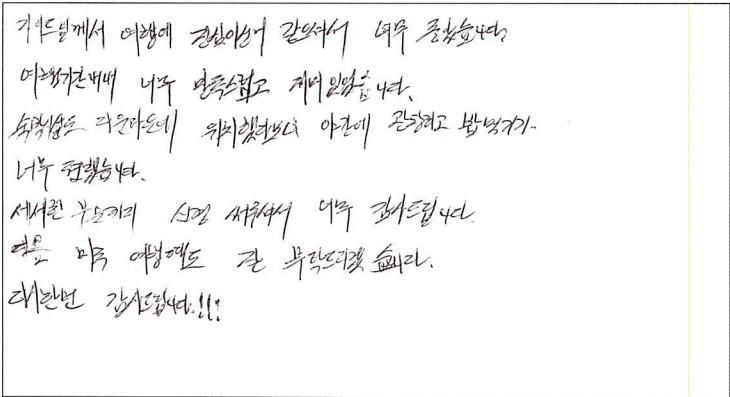 가이드님께서 여행에 진심이신거 같으셔서 너무 좋았습니다.
여행기간내내 너무 만족스럽고 재미있었습니다.
숙박업소도 다운타운에 위치했더보니 야간에 관광하고 밥먹기가
너무 편했습니다.
세세한 부분까지 신경 써주셔서 너무 감사드립니다.
다음 미국 여행때도 잘 부탁드리겠습니다.
다시한번 감사드립니다.!!!